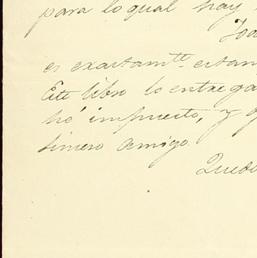 para lo qual hay
es exactamte. estam
Este libro lo entrega
ho impuesto, y q
sincero Amigo.
Qued